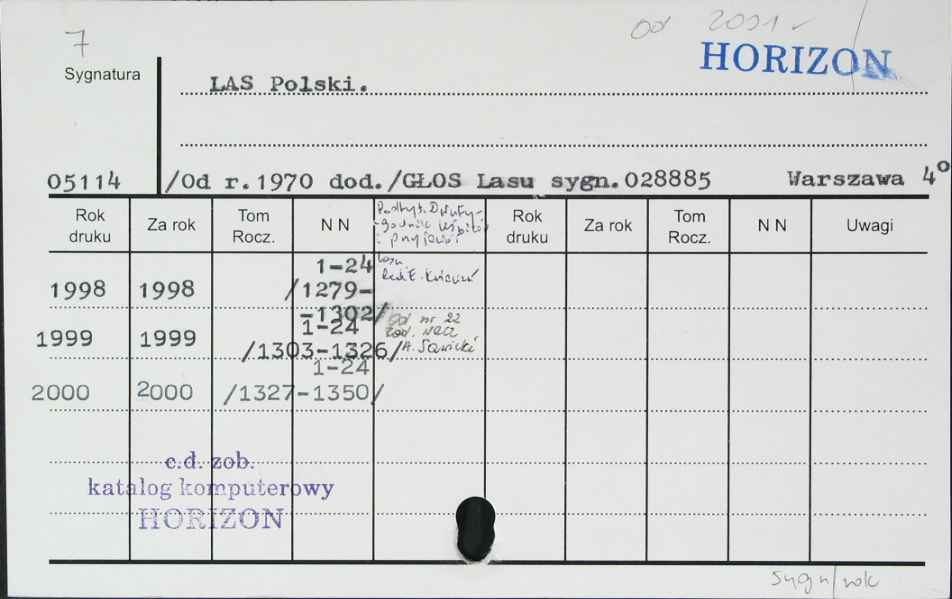 7
od 2001-
HORIZON
Sygnatura
LAS Polski.
05114 /Od r.1970 dod./GŁOS Lasu sygn.028885 Warszawa 4º
Rok druku Za rok Tom Rocz. N N Rok druku Za rok Tom Rocz. N N Uwagi
Podtyt. Dwuty-
1-24
1998 1998 /1279-
-1302/
1-24 Od nr 22
1999 1999 /1303-1326/ A. Sawicki
1-24
2000 2000 /1327-1350/
c.d. zob.
katalog komputerowy
HORIZON
sygn/rok